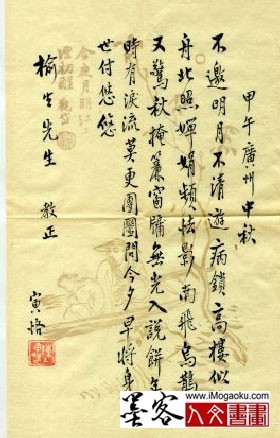 甲午廣州中秋
不邀明月不清遊病鎖高樓似
舟北照嬋娟頻怯影南飛烏鵲
又驚秋掩簾窗牖無光入說餅年
時有淚流莫更團圞問今夕早將身
世付悠悠
榆生先生 教正
寅恪
今夜月明江
www.iMogaoku.com
墨客
人文書畫